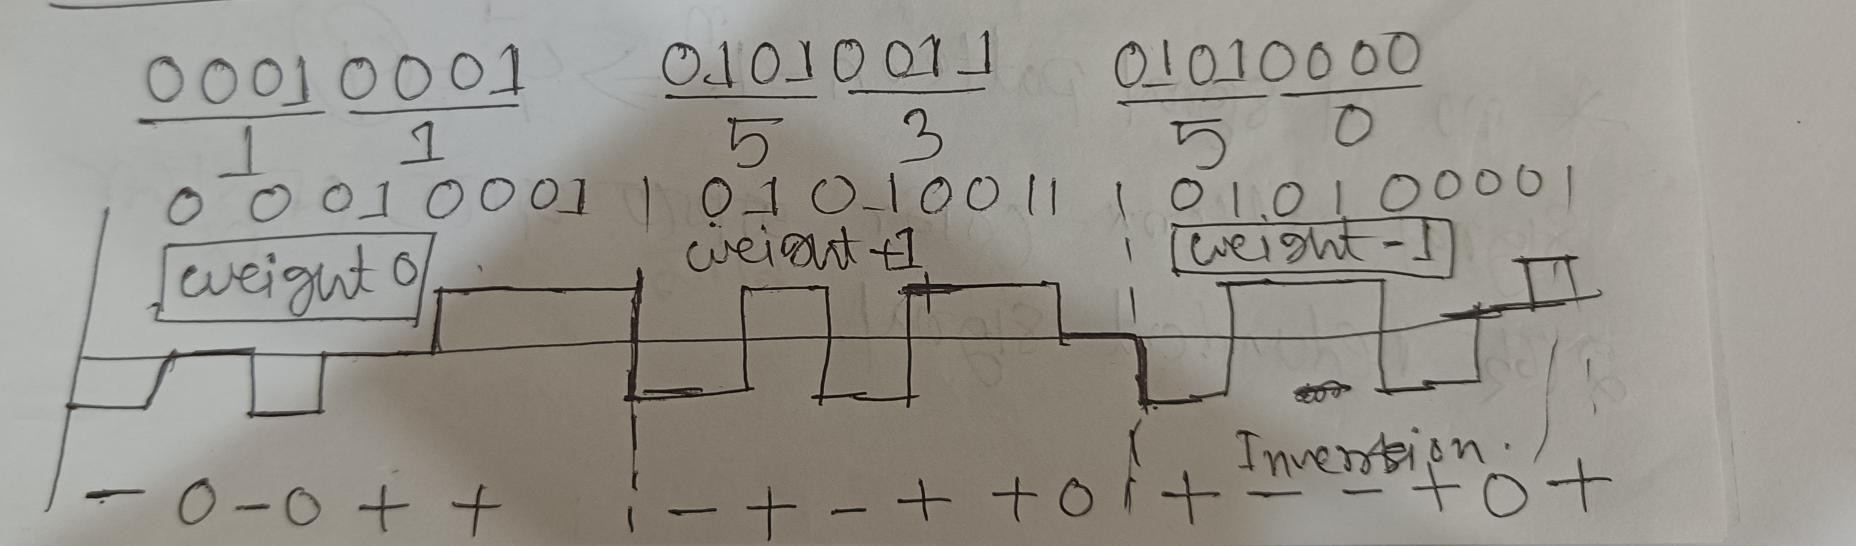 00010001 01010011 01010000
1 1 5 3 5 0
00010001 | 01010011 | 010100001
weight 0 weight +1 weight -1
+
Inversion.
- 0 - 0 + + - + - + + 0 + - - + 0 +